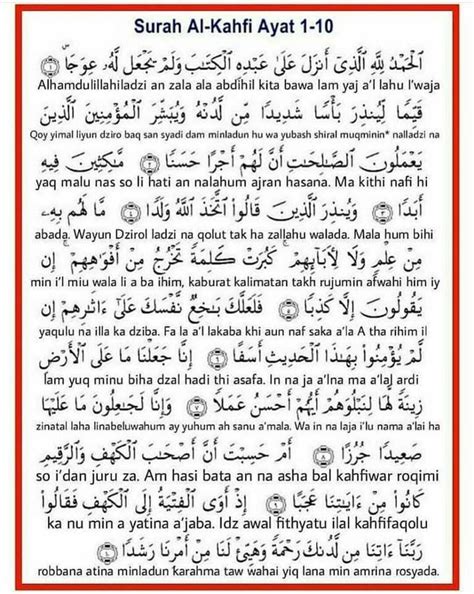 Surah Al-Kahfi Ayat 1-10
ٱلْحَمْدُ لِلَّهِ ٱلَّذِىٓ أَنزَلَ عَلَىٰ عَبْدِهِ ٱلْكِتَٰبَ وَلَمْ يَجْعَل لَّهُۥ عِوَجَا ۜ ١
Alhamdulillahiladzi an zala ala abdihil kita bawa lam yaj a'l lahu I'waja
قَيِّمًا لِّيُنذِرَ بَأْسًا شَدِيدًا مِّن لَّدُنْهُ وَيُبَشِّرَ ٱلْمُؤْمِنِينَ ٱلَّذِينَ
Qoy yimal liyun dziro baq san syadi dam minladun hu wa yubash shiral muqminin* nalladzi na
يَعْمَلُونَ ٱلصَّٰلِحَٰتِ أَنَّ لَهُمْ أَجْرًا حَسَنًا ٢ مَّٰكِثِينَ فِيهِ
yaq malu nas so li hati an nalahum ajran hasana. Ma kithi nafi hi
أَبَدًا ٣ وَيُنذِرَ ٱلَّذِينَ قَالُوا۟ ٱتَّخَذَ ٱللَّهُ وَلَدًا ٤ مَّا لَهُم بِهِۦ
abada. Wayun Dzirol ladzi na qolut tak ha zallahu walada. Mala hum bihi
مِنْ عِلْمٍ وَلَا لِءَابَآئِهِمْ ۚ كَبُرَتْ كَلِمَةً تَخْرُجُ مِنْ أَفْوَٰهِهِمْ ۚ إِن
min i'l miu wala li a ba ihim, kaburat kalimatan takh rujumin afwahi him iy
يَقُولُونَ إِلَّا كَذِبًا ٥ فَلَعَلَّكَ بَٰخِعٌ نَّفْسَكَ عَلَىٰٓ ءَاثَٰرِهِمْ إِن
yaqulu na illa ka dziba. Fa la a'l lakaba khi aun naf saka a'la A tha rihim il
لَّمْ يُؤْمِنُوا۟ بِهَٰذَا ٱلْحَدِيثِ أَسَفًا ٦ إِنَّا جَعَلْنَا مَا عَلَى ٱلْأَرْضِ
lam yuq minu biha dzal hadi thi asafa. In na ja a'lna ma a'lal ardi
زِينَةً لَّهَا لِنَبْلُوَهُمْ أَيُّهُمْ أَحْسَنُ عَمَلًا ٧ وَإِنَّا لَجَٰعِلُونَ مَا عَلَيْهَا
zinatal laha linabeluwahum ay yuhum ah sanu a'mala. Wa in na laja i'lu nama a'lai ha
صَعِيدًا جُرُزًا ٨ أَمْ حَسِبْتَ أَنَّ أَصْحَٰبَ ٱلْكَهْفِ وَٱلرَّقِيمِ
so i'dan juru za. Am hasi bata an na asha bal kahfiwar roqimi
كَانُوا۟ مِنْ ءَايَٰتِنَا عَجَبًا ٩ إِذْ أَوَى ٱلْفِتْيَةُ إِلَى ٱلْكَهْفِ فَقَالُوا۟
ka nu min a yatina a'jaba. Idz awal fithyatu ilal kahfifaqolu
رَبَّنَآ ءَاتِنَا مِن لَّدُنكَ رَحْمَةً وَهَيِّئْ لَنَا مِنْ أَمْرِنَا رَشَدًا ١٠
robbana atina minladun karahma taw wahai yiq lana min amrina rosyada.